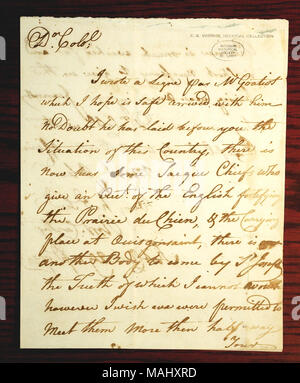 Dr Colol;
I wrote a Ligne par Mr Gratiot
which I hope is safe arrived with him
no Doubt he has laid before you the
Situation of this Country, there is
now hear Some Saques Chiefs who
give an Act. of the English fortifying
the Prairie du Chien, & the carrying
place at Ouisgonsaint, there is
another Rept. to come by St Joseph
the Truth of which I cannot
however I wish we were permitted to
Meet them More then half way
Your
alamy
Image ID: MAHXRD
www.alamy.com